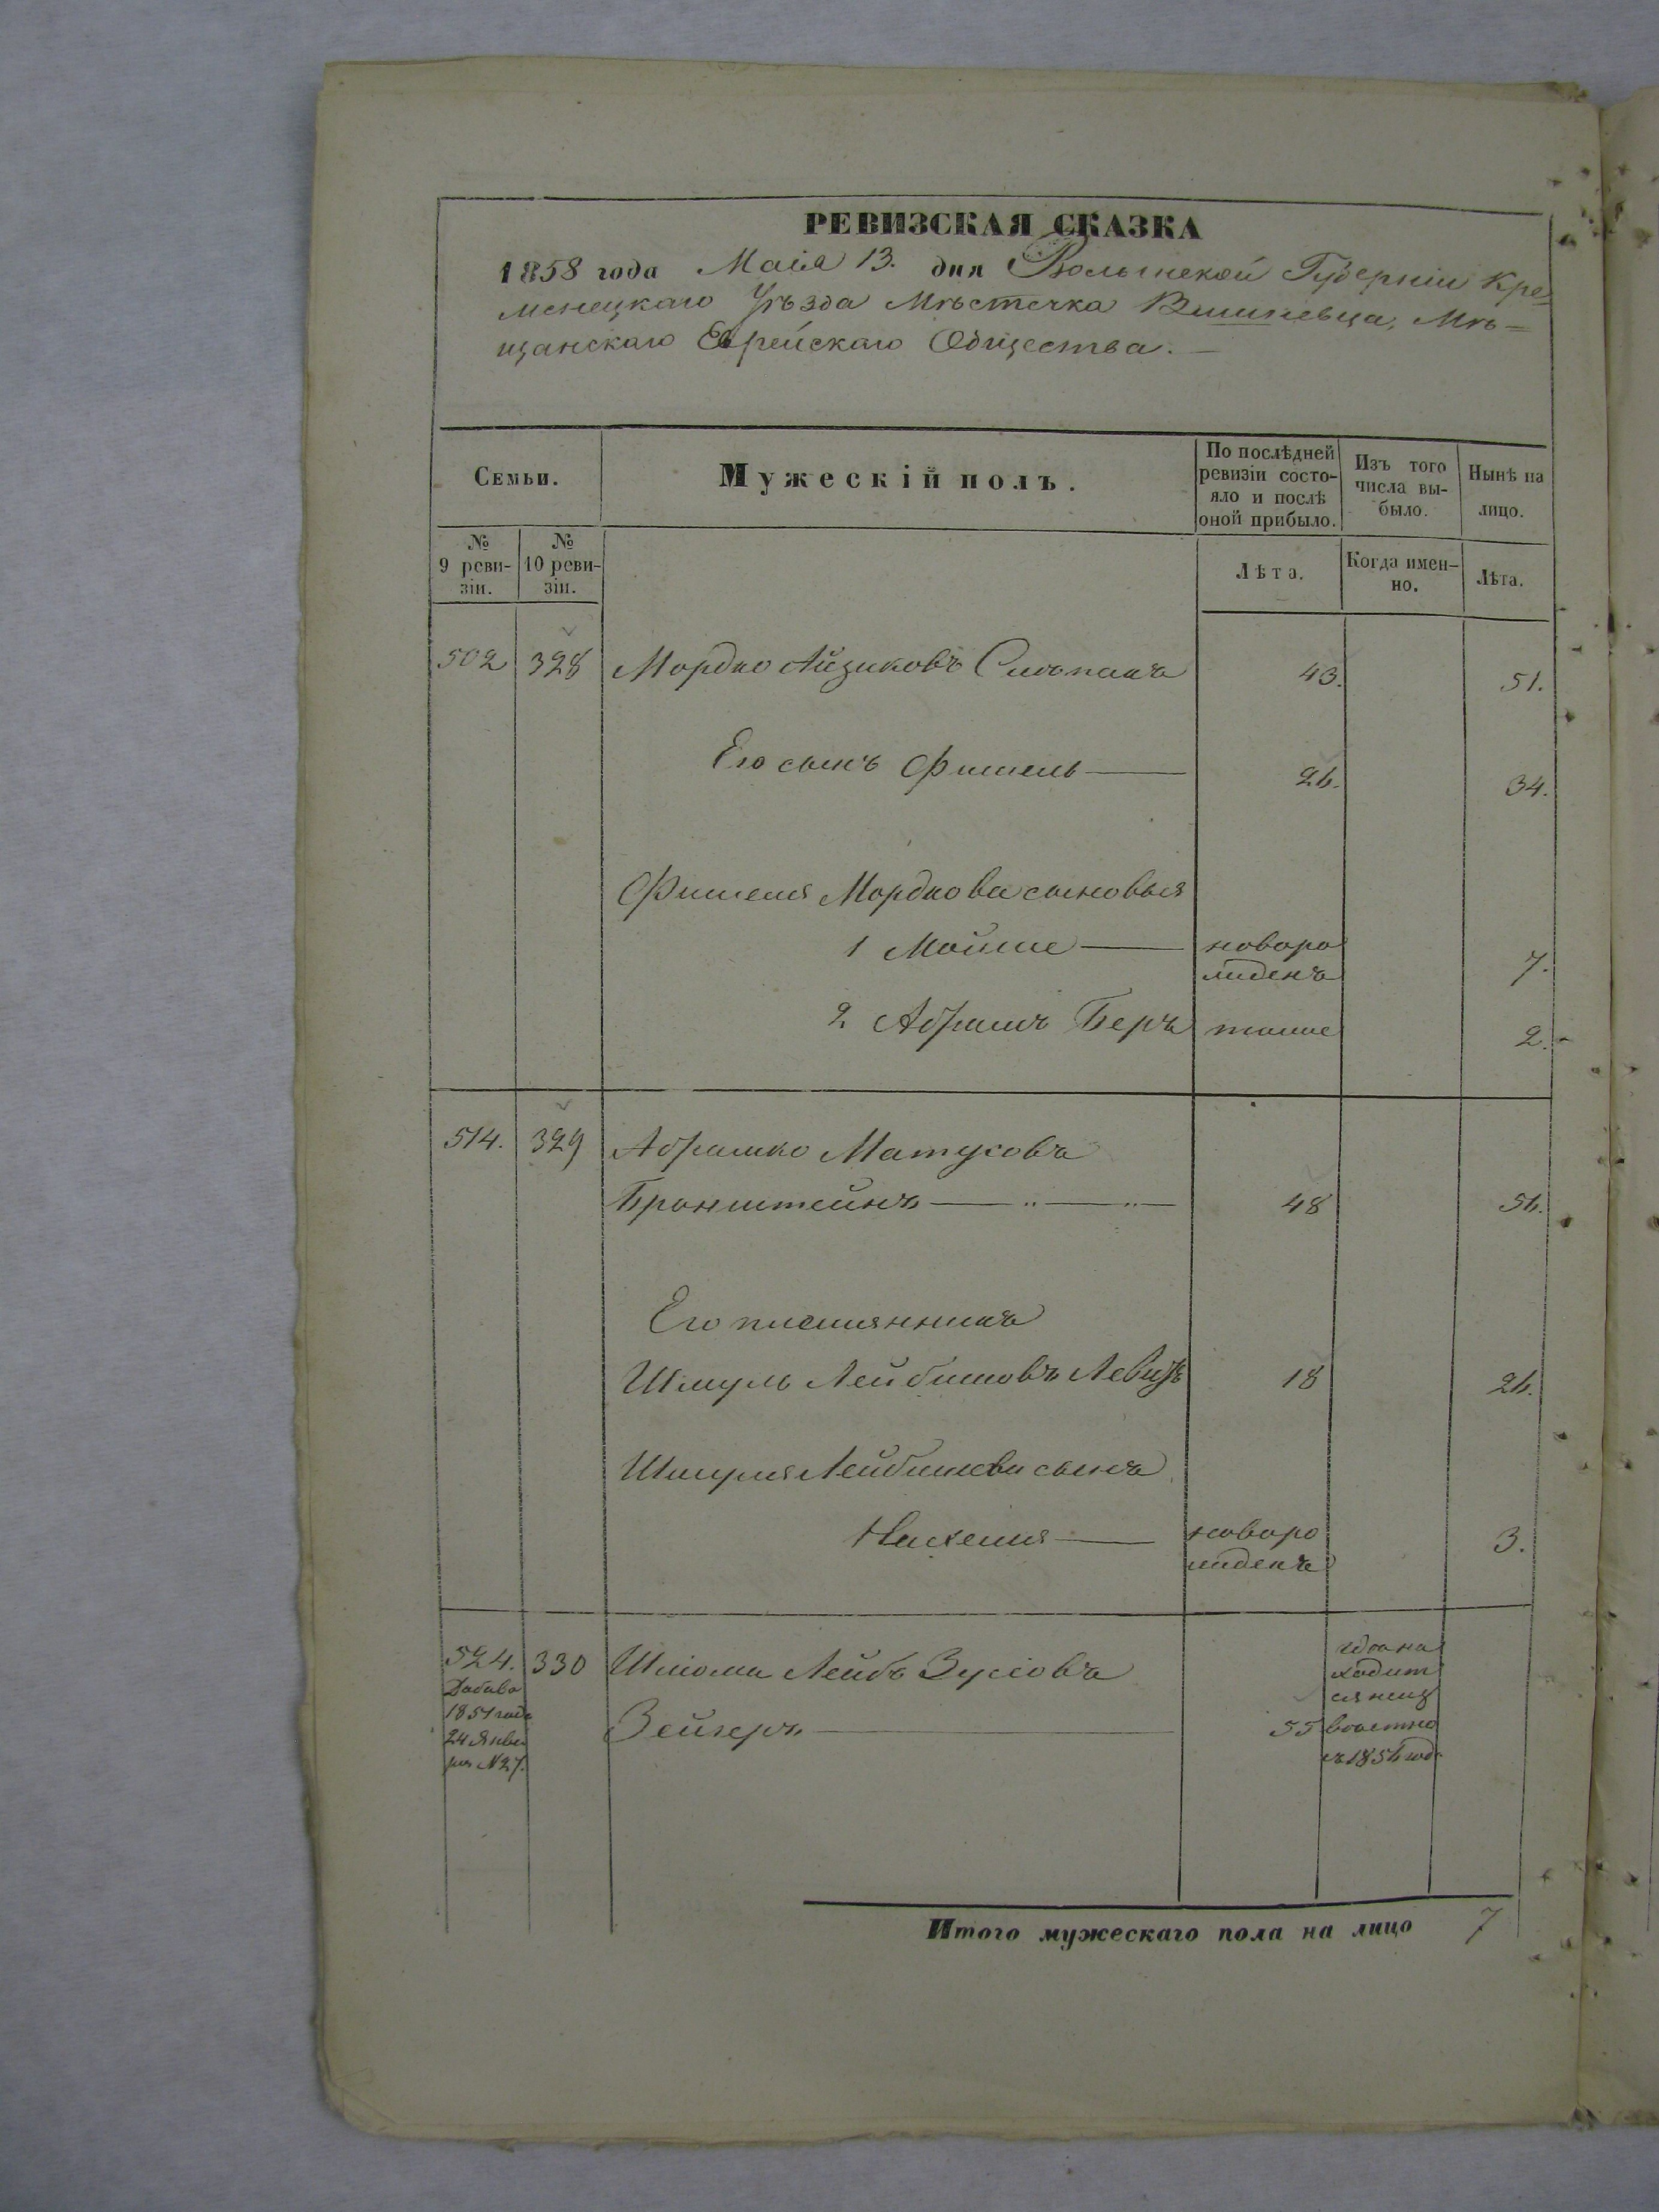 РЕВИЗСКАЯ СКАЗКА
1858 года Маія 13. дня Волынской Губерніи Кре=
менецкаго Уѣзда Мѣстечка Вишневца, Мѣ=
щанскаго Еврейскаго Общества.—
Семьи.
Мужескій полъ.
По послѣдней
ревизіи состо-
яло и послѣ
оной прибыло.
Изъ того
числа вы-
было.
Нынѣ на
лицо.
№
9 реви-
зіи.
№
10 реви-
зіи.
Лѣта.
Когда имен-
но.
Лѣта.
502 328 Мордко Айзиковъ 43. 51.
Его сынъ Фишель 26. 34.
Фишеля Мордкова сыновья
1 Мойше новоро 7.
жденъ
2 Абрамъ Беръ тоже 2.
514. 329 Абрамко Матусовъ
Бронштейнъ 48 56.
Его племянникъ
Шмуль Лейбишовъ 18 26.
Шмуля Лейбишева сынъ
новоро 3.
жденъ
524. 330 Шліома Лейбъ Зусіовъ
Добаво
1851 года
24 Янва
ря №27.
Зейгеръ 55
гдѣ на
ходит
ся неиз
вѣстно
съ 1856 год.
Итого мужескаго пола на лицо 7